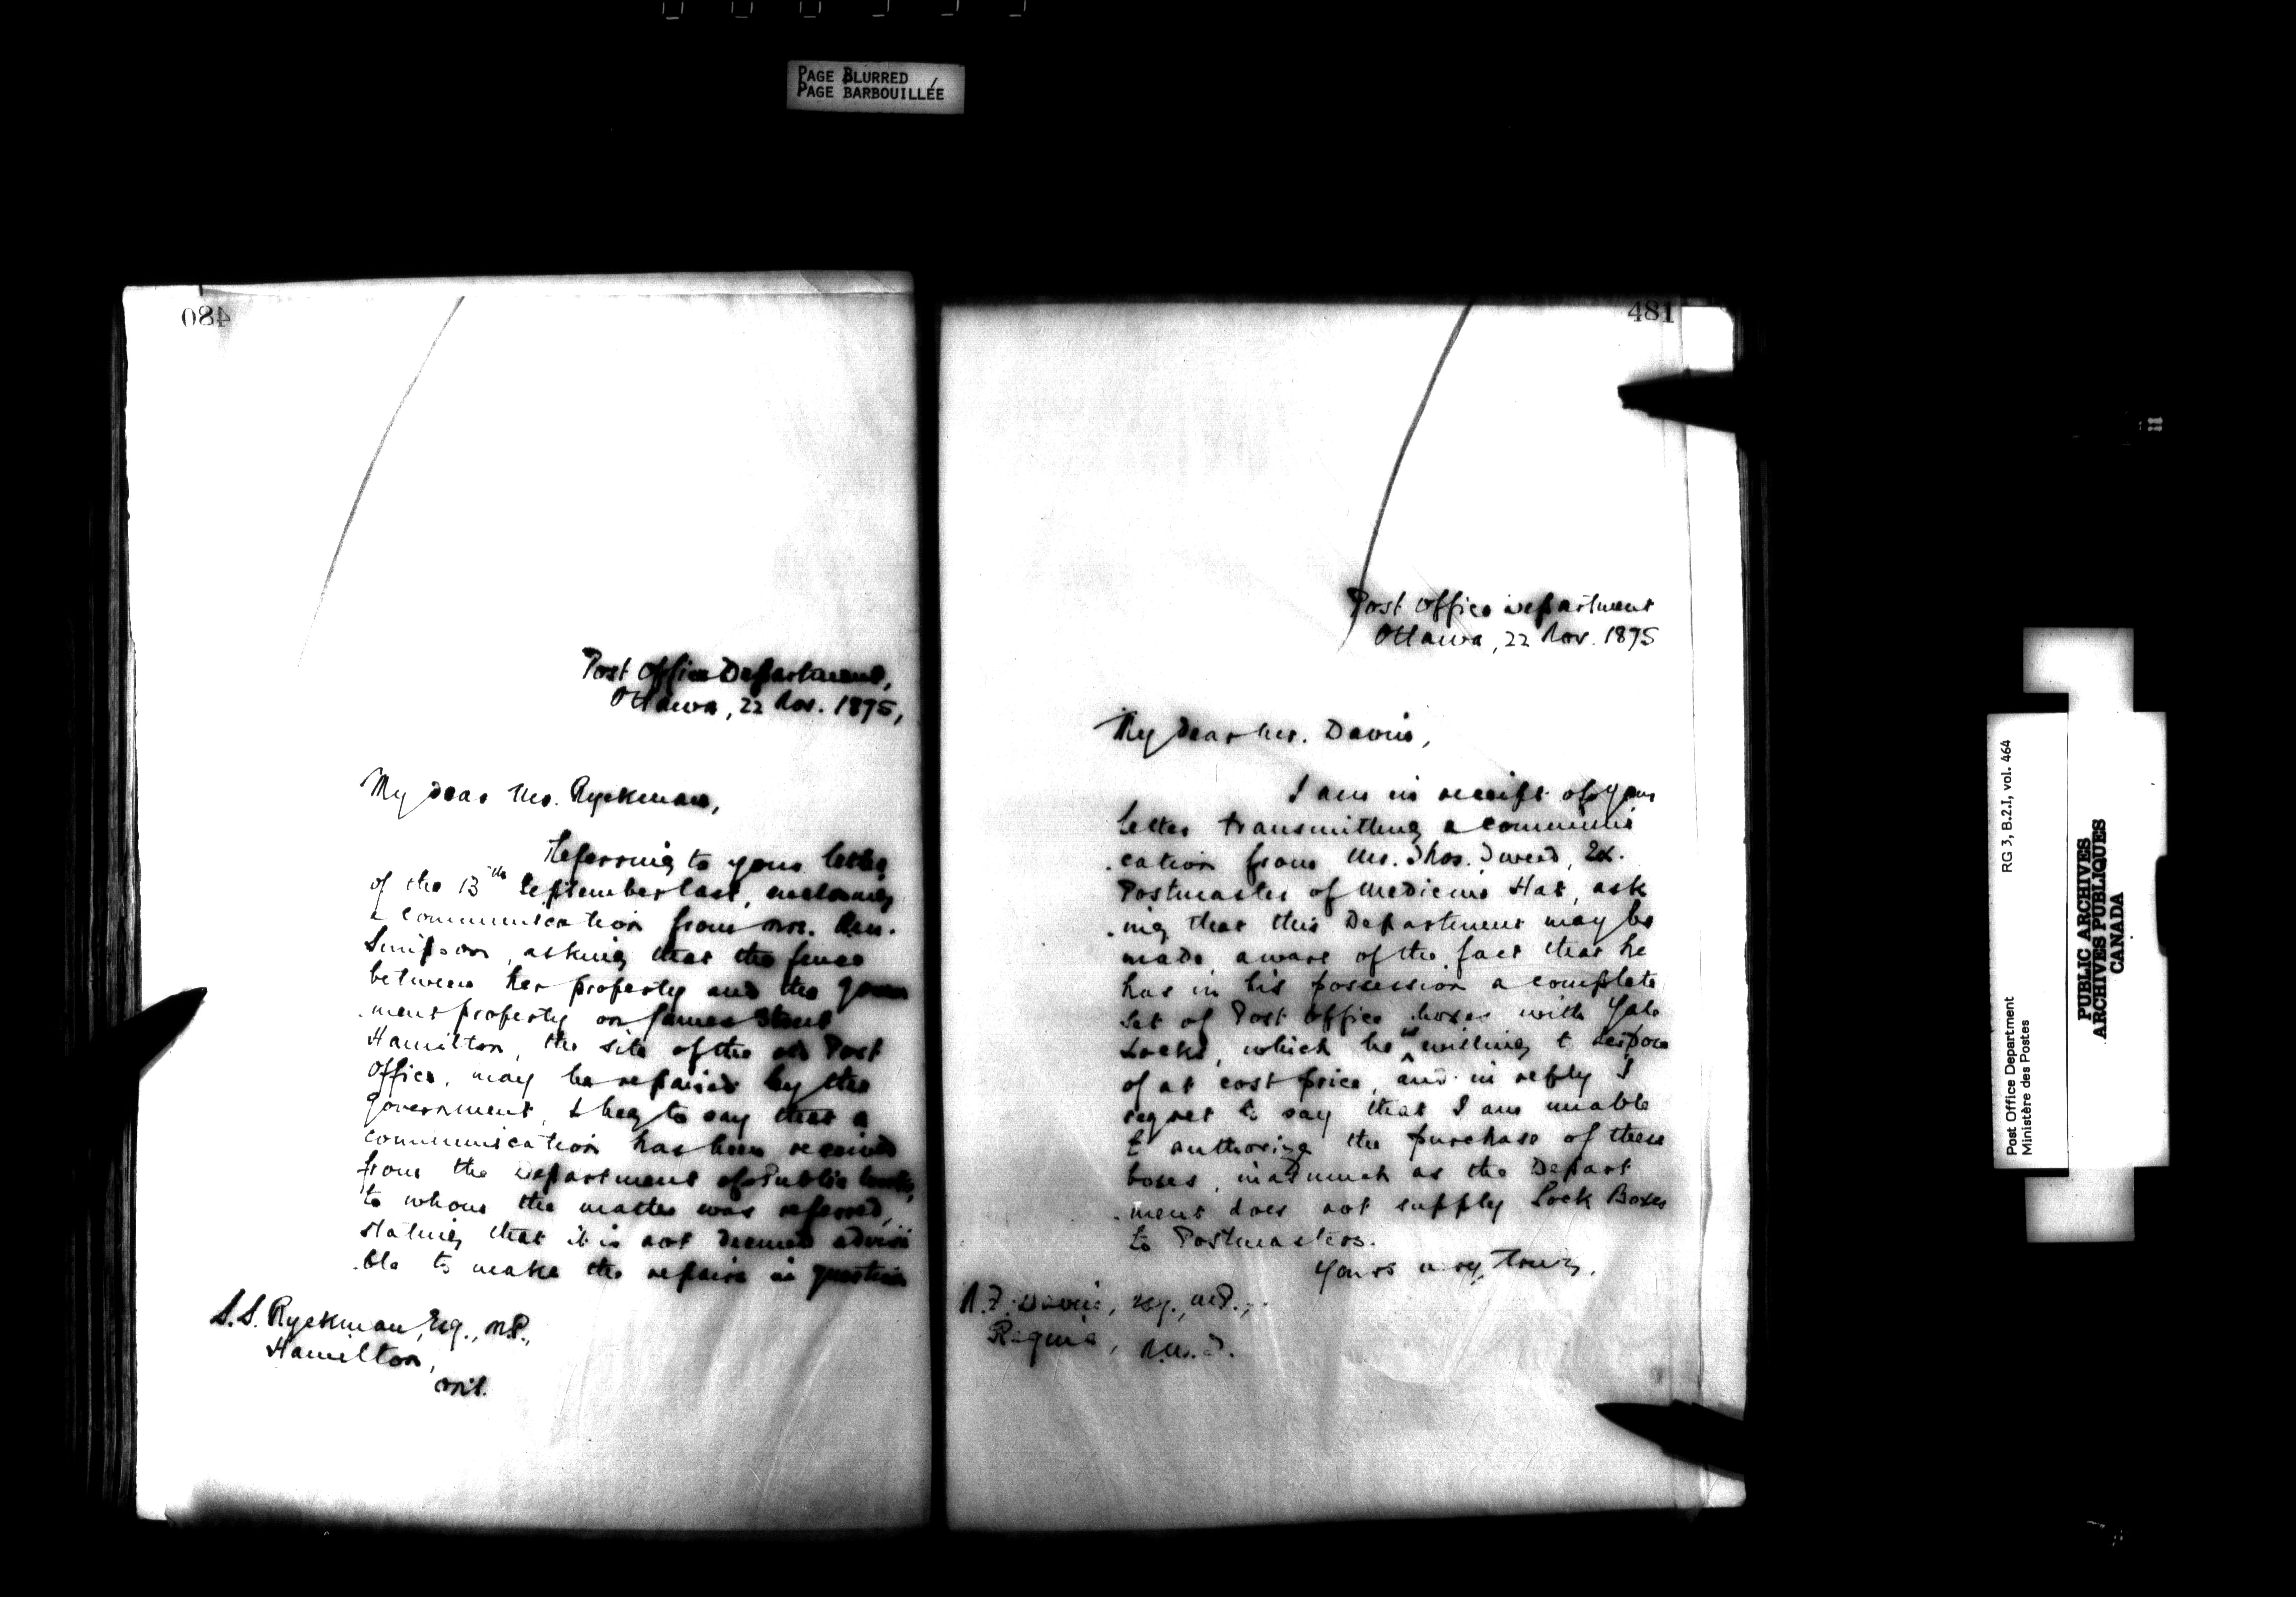 PAGE BLURRED
PAGE BARBOUILLÉE
480
Post Office Department,
Ottawa, 22 Nov. 1895,
My dear Mr. Ryckman,
Referring to your letter
of the 13th September last, enclosing
a communication from Mrs.
Simpson, asking that the fence
between her property and the Govern
ment property on James Street
Hamilton, the site of the old Post
Office, may be repaired by the
Government, I beg to say that a
communication has been received
from the Department of Public Works,
to whom the matter was referred,
stating that it is not deemed advisa
ble to make the repairs in question
S.S. Ryckman, Esq., M.P.,
Hamilton,
Ont.
481
Post Office Department
Ottawa, 22 Nov. 1895
My dear Mr. Davin,
I am in receipt of your
letter transmitting a communi
cation from Mr. Thos. Tweed, Ex.
Postmaster of Medicine Hat, ask
ing that this Department may be
made aware of the fact that he
has in his possession a complete
set of Post Office boxes with Yale
Locks, which he is willing to dispose
of at cost price, and in reply I
regret to say that I am unable
to authorize the purchase of these
boxes, inasmuch as the Depart
ment does not supply Lock Boxes
to Postmasters.
Yours very truly,
N.F. Davin, Esq., M.P.,
Regina, N.W.T.
Post Office Department
Ministère des Postes
RG 3, B.2.I, vol. 464
PUBLIC ARCHIVES
ARCHIVES PUBLIQUES
CANADA